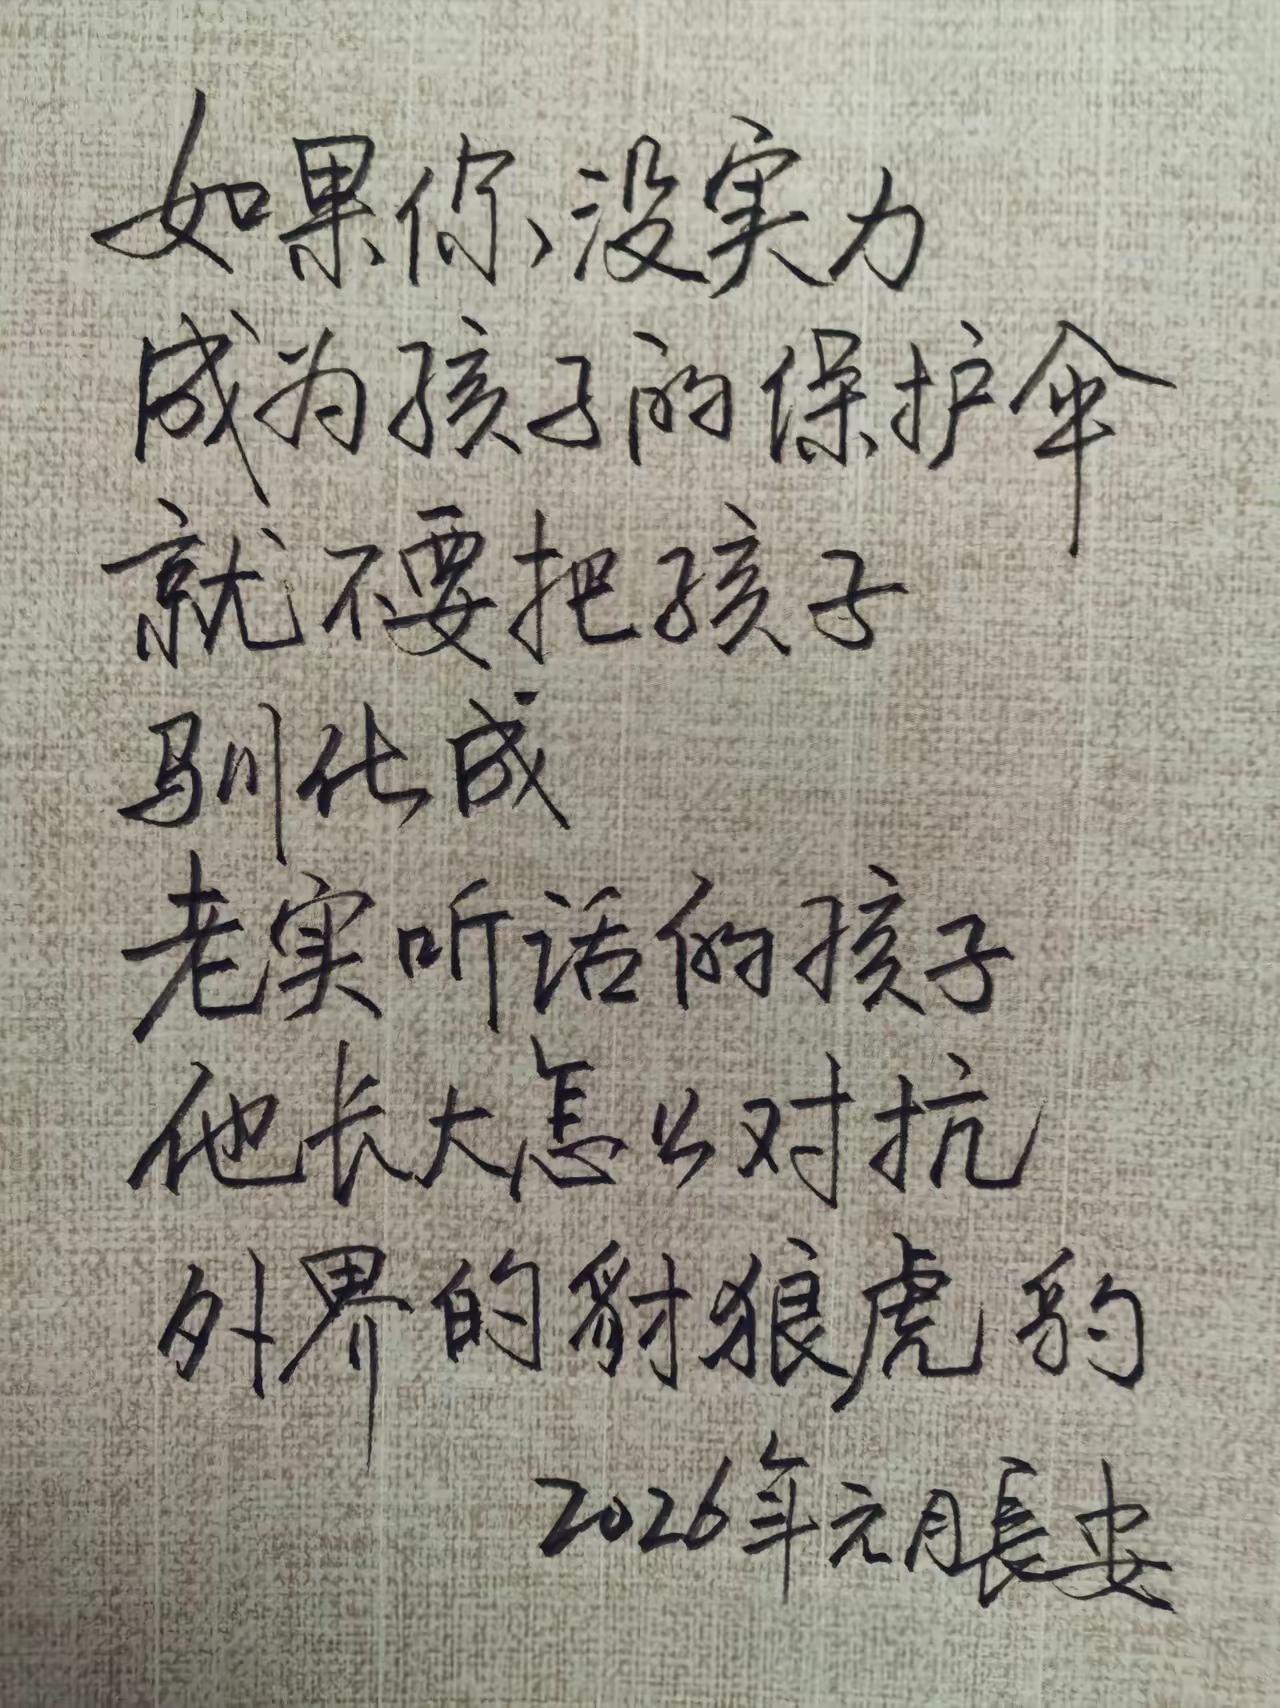 如果你没实力
成为孩子的保护伞
就不要把孩子
驯化成
老实听话的孩子
他长大怎么对抗
外界的豺狼虎豹
2026年元月長安